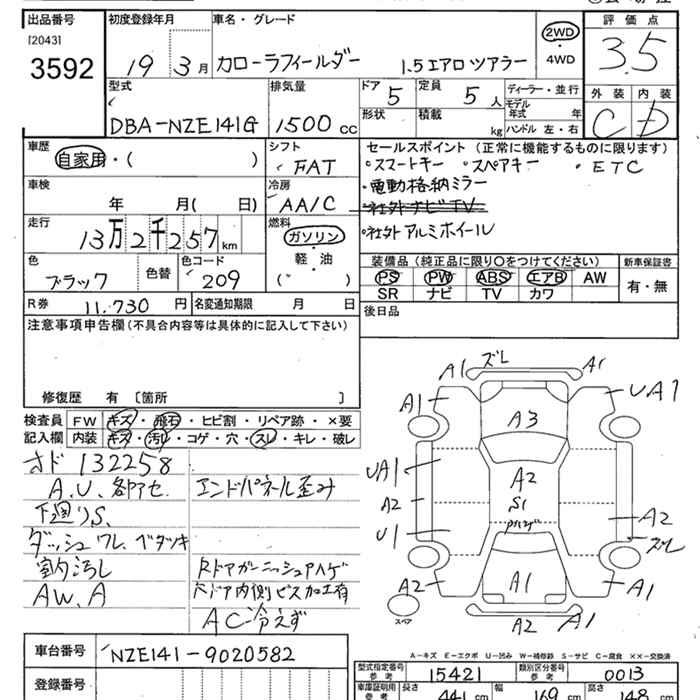 出品番号 初度登録年月 車名・グレード 評価点
[2043]
3592 19 3月 カローラフィールダー 1.5エアロツアラー 2WD・4WD 3.5
型式 排気量 ドア 5 定員 5人 ディーラー・並行 外装 内装
DBA-NZE141G 1500cc 形状 積載 kg モデル年式 年 ハンドル 左・右 C D
車歴 シフト セールスポイント (正常に機能するものに限ります)
自家用・( ) FAT ・スマートキー ・スペアキー ・ETC
車検 冷房 ・電動格納ミラー
年 月( 日) AA/C ・社外ナビTV
走行 燃料 ・社外アルミホイール
13万2千257km ガソリン・軽・油( )
色 色替 色コード 装備品 (純正品に限り○をつけてください) 新車保証書
ブラック 209 PS PW ABS エアB AW 有・無
R券 11,730円 名変通知期限 月 日 SR ナビ TV カワ
注意事項申告欄(不具合内容等は具体的に記入して下さい) 後日品
修復歴 有 〔箇所 〕
検査員 FW キズ・飛石・ヒビ割・リペア跡・×要
記入欄 内装 キズ・汚れ・コゲ・穴・スレ・キレ・破レ
メーター 132258
A.U.各部アセ エンドパネル歪み
下廻りS.
ダッシュワレ、ベタツキ
室内汚し RドアガーニッシュハゲRドア内側ビス加工有
AW.A
AC冷えず
A1 ズレ A1
A1 UA1
A3
UA1 A2
A2 S1 A2
U1 ズレ
A2 A1 A1
スペア A2 A1
車台番号 NZE141-9020582
A-キズ E-エクボ U-凹み W-補修跡 S-サビ C-腐食 ××-交換済
型式指定番号 参考 15421 類別区分番号 参考 0013
登録番号 車庫証明用 参考 長さ 441cm 幅 169cm 高さ 148cm